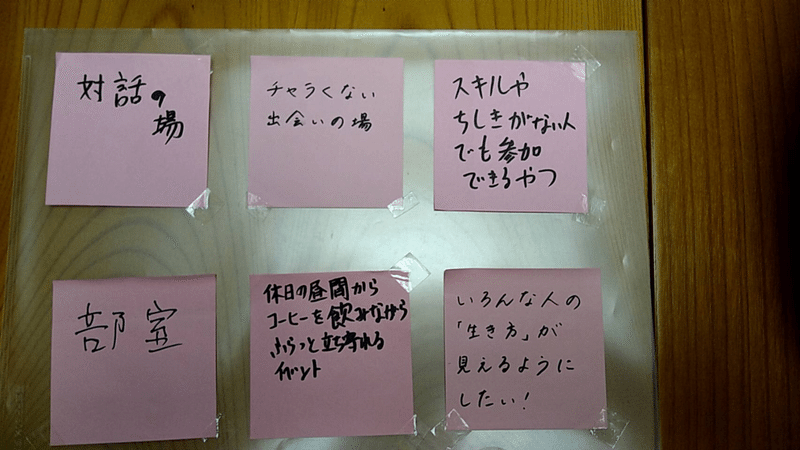 対話の
場
チャラくない
出会いの場
スキルや
ちしきがない人
でも参加
できるやつ
部室
休日の昼間から
コーヒーを飲みながら
ふらっと立ち寄れる
イベント
いろんな人の
「生き方」が
見えるように
したい!